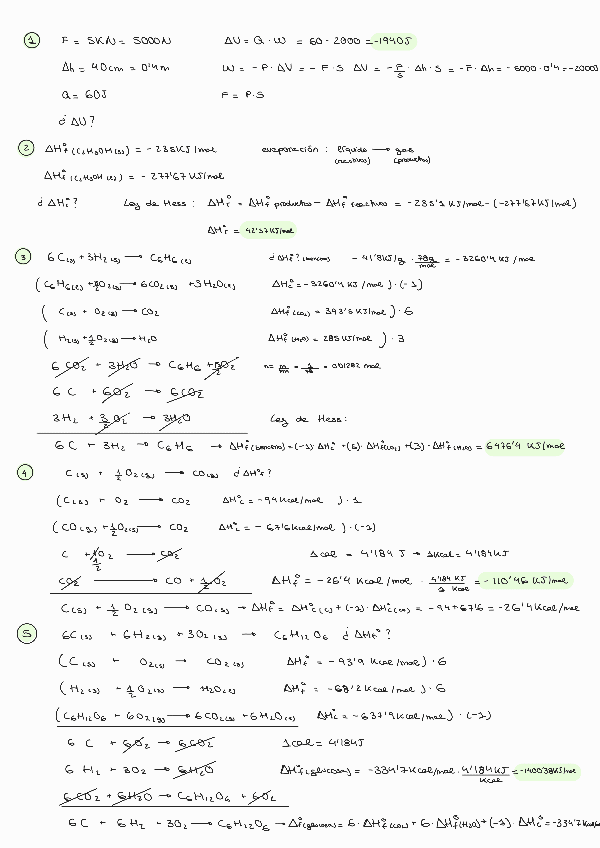 1 F = 5KN = 5000N ΔU = Q · W = 60 - 2000 = -1940J
Δh = 40cm = 0'4m W = -P · ΔV = -F · S ΔV = -F/S · Δh · S = -F · Δh = -5000 · 0'4 = -2000J
Q = 60J F = P · S
¿ ΔU?
2 ΔHf° (C2H5OH(g)) = -235KJ/mol evaporación : líquido → gas
(reactivos) (productos)
ΔHf° (C2H5OH(l)) = -277'67 KJ/mol
¿ ΔHr°? Ley de Hess : ΔHr° = ΔHf° productos - ΔHf° reactivos = -235'1 KJ/mol - (-277'67 KJ/mol)
ΔHr° = 42'57KJ/mol
3 6 C(s) + 3H2(g) → C6H6(l) ¿ ΔHf°? (benceno) -41'8KJ/g · 78g/mol = -3260'4 KJ/mol
(C6H6(l) + O2(g) → 6CO2(g) + 3H2O(l) ΔHc° = -3260'4 KJ/mol) · (-1)
( C(s) + O2(g) → CO2 ΔHf°(CO2) = 393'5 KJ/mol ) · 6
( H2(g) + 1/2 O2(g) → H2O ΔHf°(H2O) = 285 KJ/mol ) · 3
6 CO2 + 3H2O → C6H6 + O2 n = m/mm = 1/78 = 0'01282 mol
6 C + 6O2 → 6CO2
3H2 + 3/2 O2 → 3H2O Ley de Hess:
6 C + 3H2 → C6H6 → ΔHf°(benceno) = (-1) · ΔHc° + (6) · ΔHf°(CO2) + (3) · ΔHf°(H2O) = 6476'4 KJ/mol
4 C(s) + 1/2 O2(g) → CO(g) ¿ ΔHf?
(C(s) + O2 → CO2 ΔHc° = -94Kcal/mol ) · 1
(CO(g) + 1/2 O2(g) → CO2 ΔHc° = -67'6Kcal/mol ) · (-1)
C + 1/2 O2 → CO2 1cal = 4'184 J → 1Kcal = 4'184KJ
CO2 → CO + 1/2 O2 ΔHf° = -26'4 Kcal/mol · 4'184 KJ/1 Kcal = -110'46 KJ/mol
C(s) + 1/2 O2(g) → CO(g) → ΔHf° = ΔHc°(C) + (-1) · ΔHc°(CO) = -94 + 67'6 = -26'4Kcal/mol
5 6C(s) + 6H2(g) + 3O2(g) → C6H12O6 ¿ ΔHf°?
(C(s) + O2(g) → CO2(g) ΔHf° = -93'9 Kcal/mol) · 6
(H2(g) + 1/2 O2(g) → H2O(l) ΔHf° = -68'2 Kcal/mol ) · 6
(C6H12O6 + 6O2(g) → 6CO2(g) + 6H2O(l) ΔHc° = -637'9Kcal/mol) · (-1)
6 C + 6O2 → 6CO2 1cal = 4'184J
6 H2 + 3O2 → 6H2O ΔHf°(glucosa) = -334'7Kcal/mol · 4'184KJ/Kcal = -1400'38KJ/mol
6CO2 + 6H2O → C6H12O6 + 6O2
6C + 6H2 + 3O2 → C6H12O6 → Δf°(glucosa) = 6 · ΔHf°(CO2) + 6 · ΔHf°(H2O) + (-1) · ΔHc° = -334'7Kcal